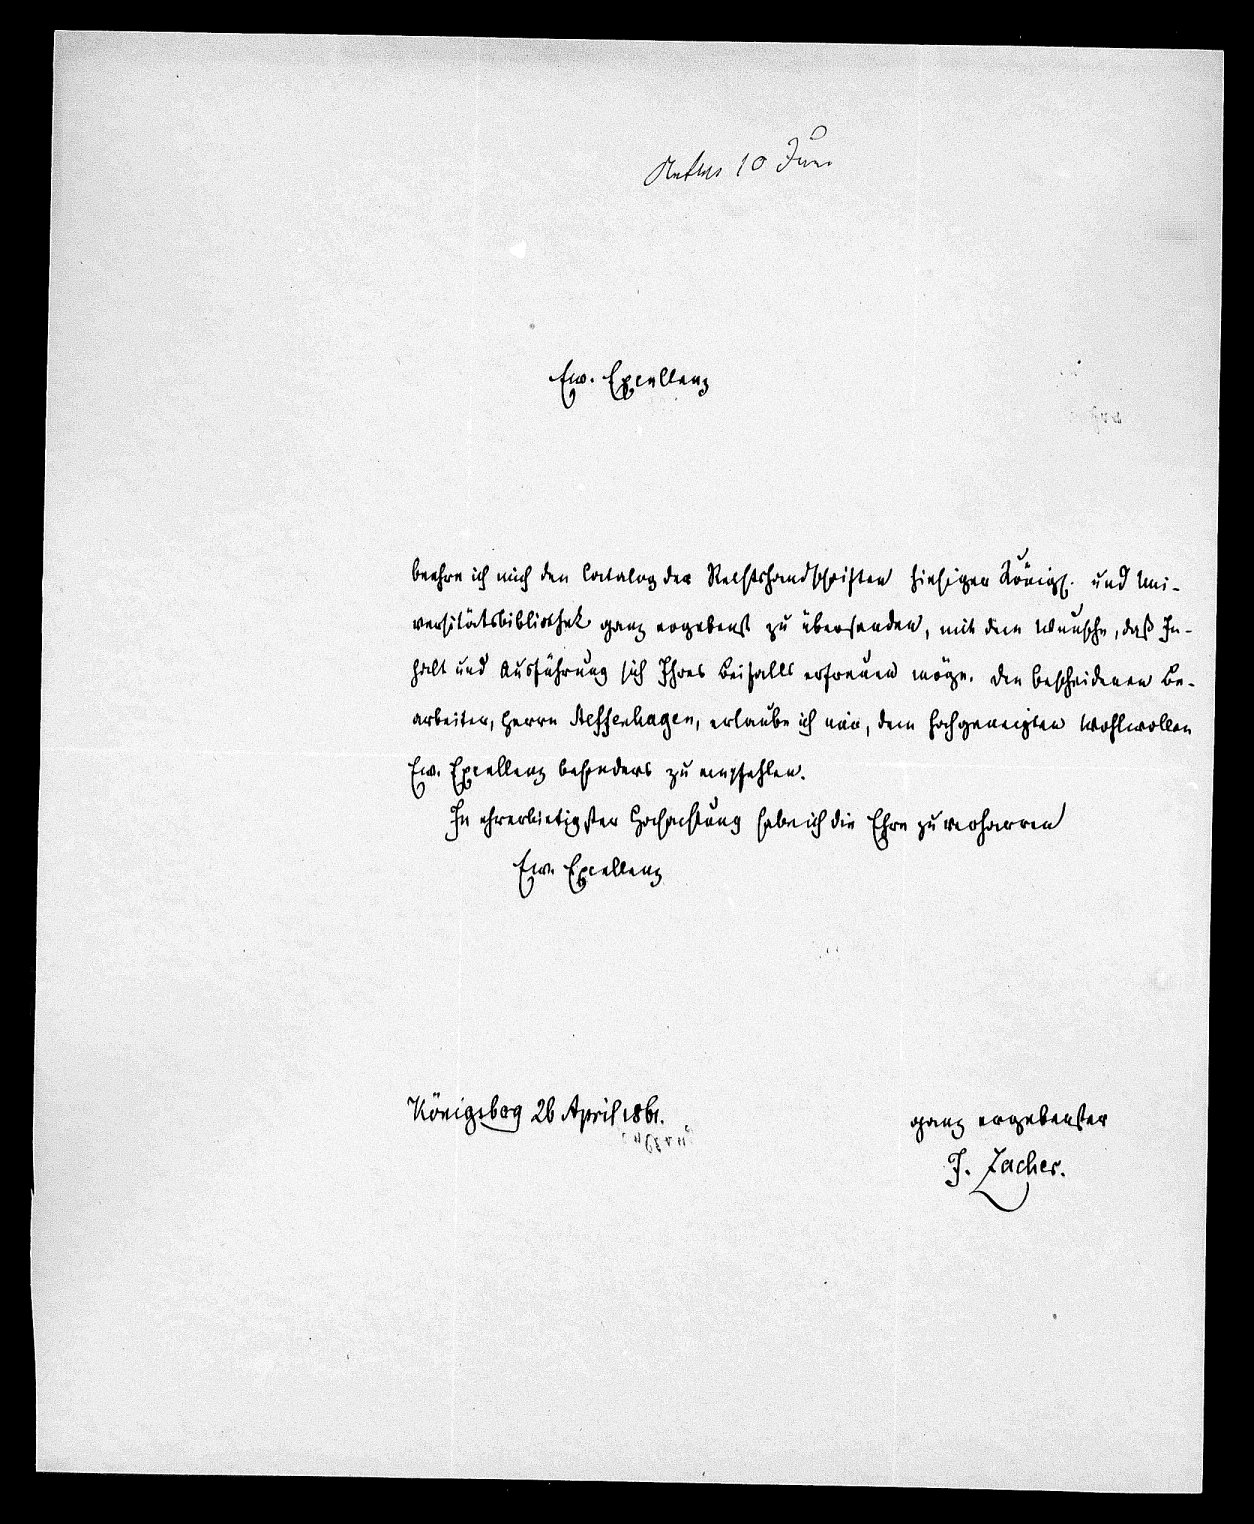 10 Juni
Ew. Excellenz
beehre ich mich den Catalog der Rechtshandschriften hiesiger Königl. und Uni-
versitätsbibliothek ganz ergebenst zu übersenden, mit dem Wunsche, daß In-
halt und Ausführung sich Ihres Beifalls erfreuen möge. Den bescheidenen Be-
arbeiter, Herrn Steffenhagen, erlaube ich mir, dem hochgeneigten Wohlwollen
Ew. Excellenz besonders zu empfehlen.
In ehrerbietigster Hochachtung habe ich die Ehre zu verharren
Ew. Excellenz
Königsberg 26 April 1861.
ganz ergebenster
J. Zacher.